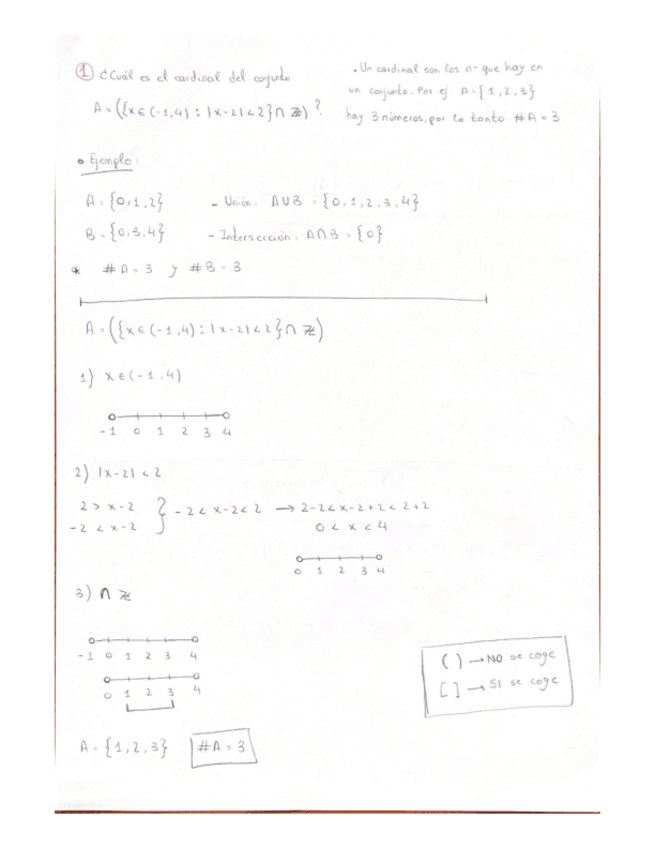 ① ¿Cuál es el cardinal del conjunto
A = ({x ∈ (-1,4) : |x-2| < 2} ∩ ℤ) ?
• Un cardinal son los nº que hay en
un conjunto. Por ej A = {1,2,3}
hay 3 números, por lo tanto #A = 3
• Ejemplo:
A = {0,1,2} - Unión: A∪B = {0,1,2,3,4}
B = {0,3,4} - Intersección: A∩B = {0}
* #A = 3 y #B = 3
A = ({x ∈ (-1,4) : |x-2| < 2} ∩ ℤ)
1) x ∈ (-1,4)
-1 0 1 2 3 4
2) |x-2| < 2
2 > x-2
-2 < x-2
} -2 < x-2 < 2 → 2-2 < x-2+2 < 2+2
0 < x < 4
0 1 2 3 4
3) ∩ ℤ
-1 0 1 2 3 4
0 1 2 3 4
( ) → NO se coge
[ ] → SI se coge
A = {1,2,3} #A = 3